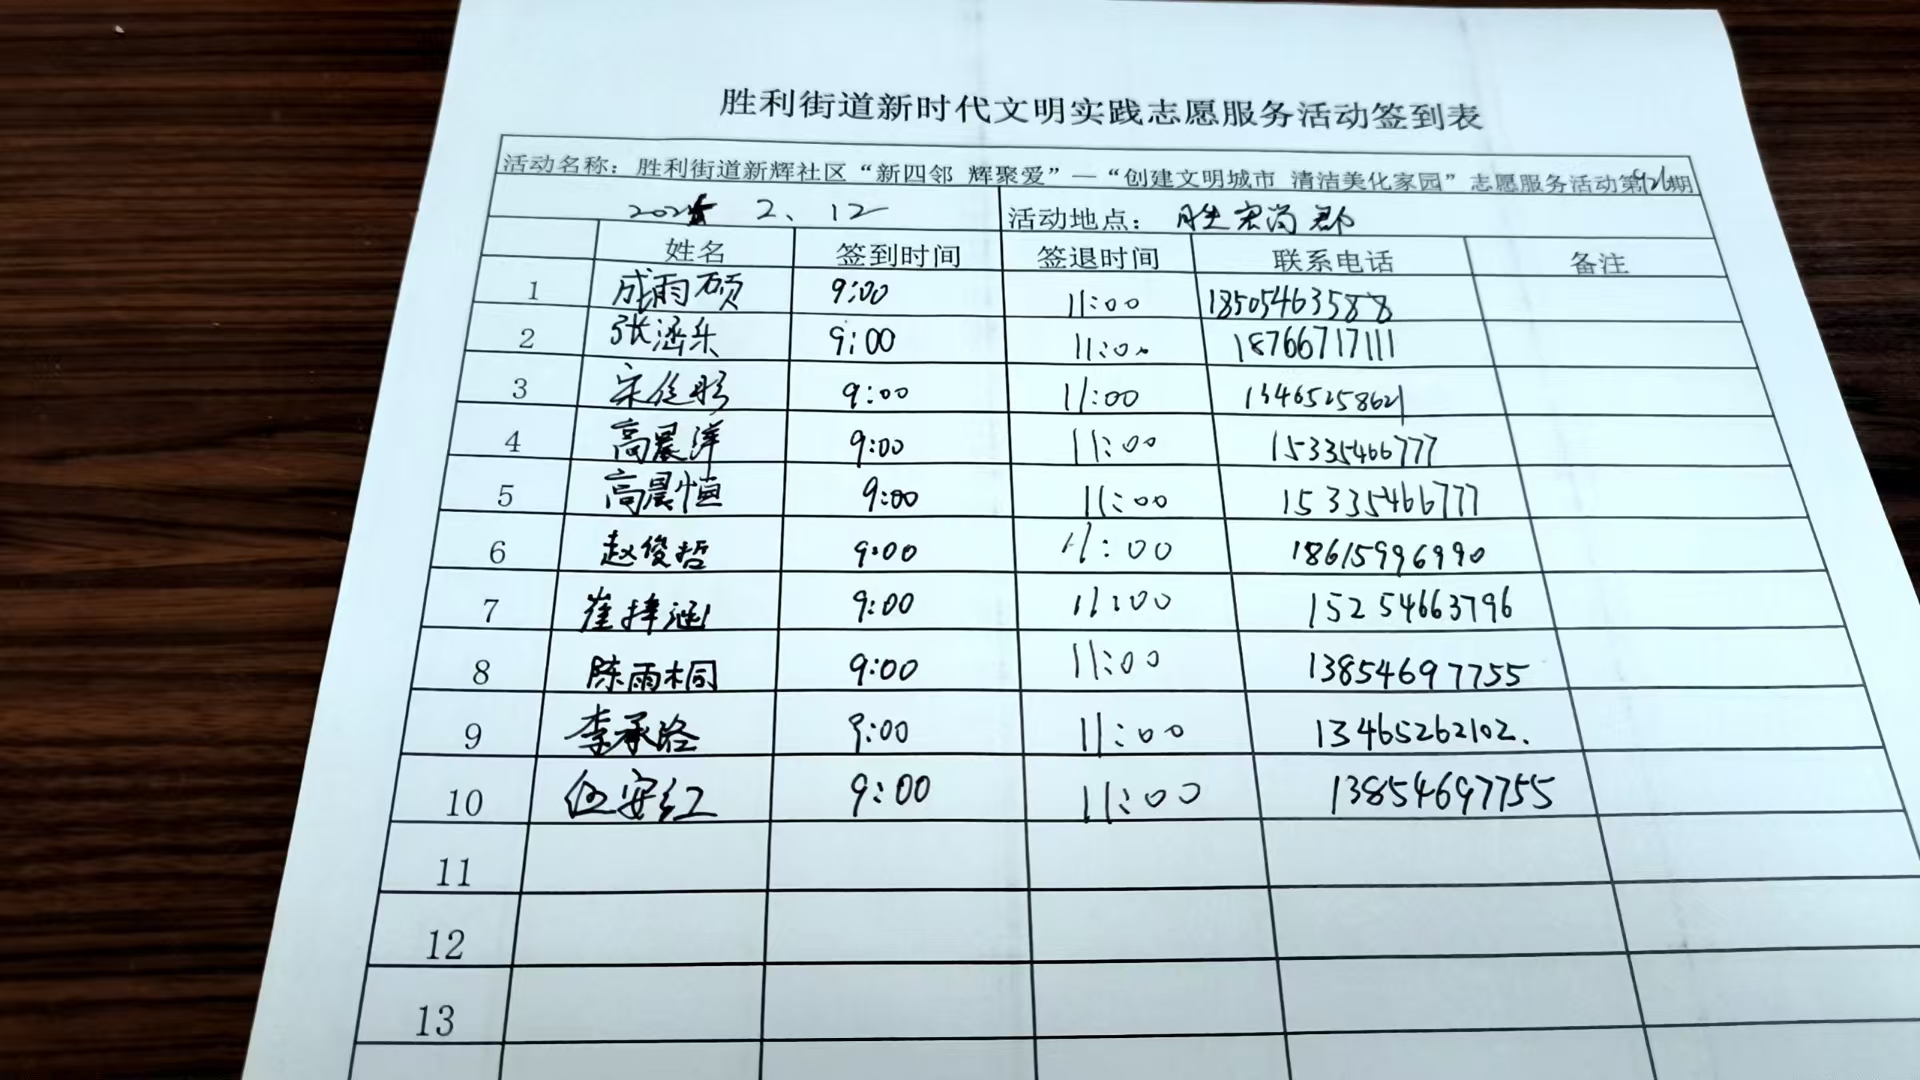 胜利街道新时代文明实践志愿服务活动签到表
活动名称：胜利街道新辉社区“新四邻 辉聚爱”—“创建文明城市 清洁美化家园”志愿服务活动第926期
2025 2、12 活动地点：胜宏尚郡
姓名 签到时间 签退时间 联系电话 备注
1 成雨硕 9:00 11:00 18505463588
2 张涵乐 9:00 11:00 18766717111
3 宋俊彤 9:00 11:00 13465258621
4 高晨洋 9:00 11:00 15335466777
5 高晨恒 9:00 11:00 15335466777
6 赵俊哲 9:00 11:00 18615996990
7 崔梓涵 9:00 11:00 15254663796
8 陈雨桐 9:00 11:00 13854697755
9 李承洛 9:00 11:00 13465262102.
10 安红 9:00 11:00 13854697755
11
12
13